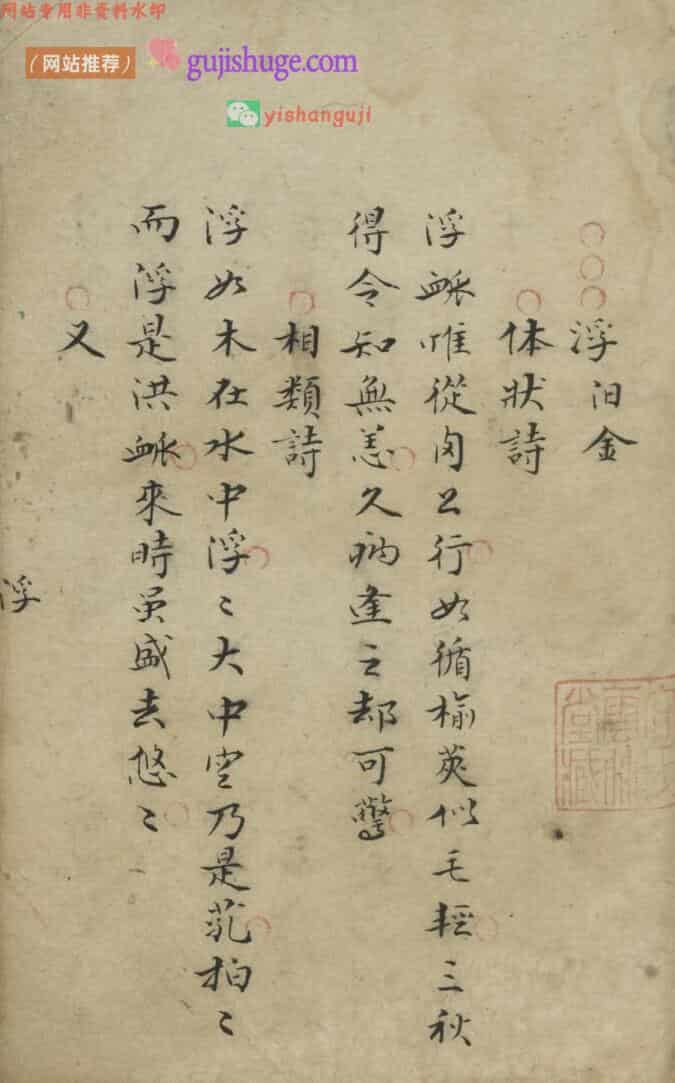 网站专用非资料水印
（网站推荐） gujishuge.com
yishanguji
浮 阳金
体狀詩
浮䘑惟從肉上行如循榆莢似毛輕三秋
得令知無恙久病逢之却可驚
相類詩
浮如木在水中浮〻大中空乃是芤拍〻
而浮是洪䘑來時虽盛去悠〻
又
浮